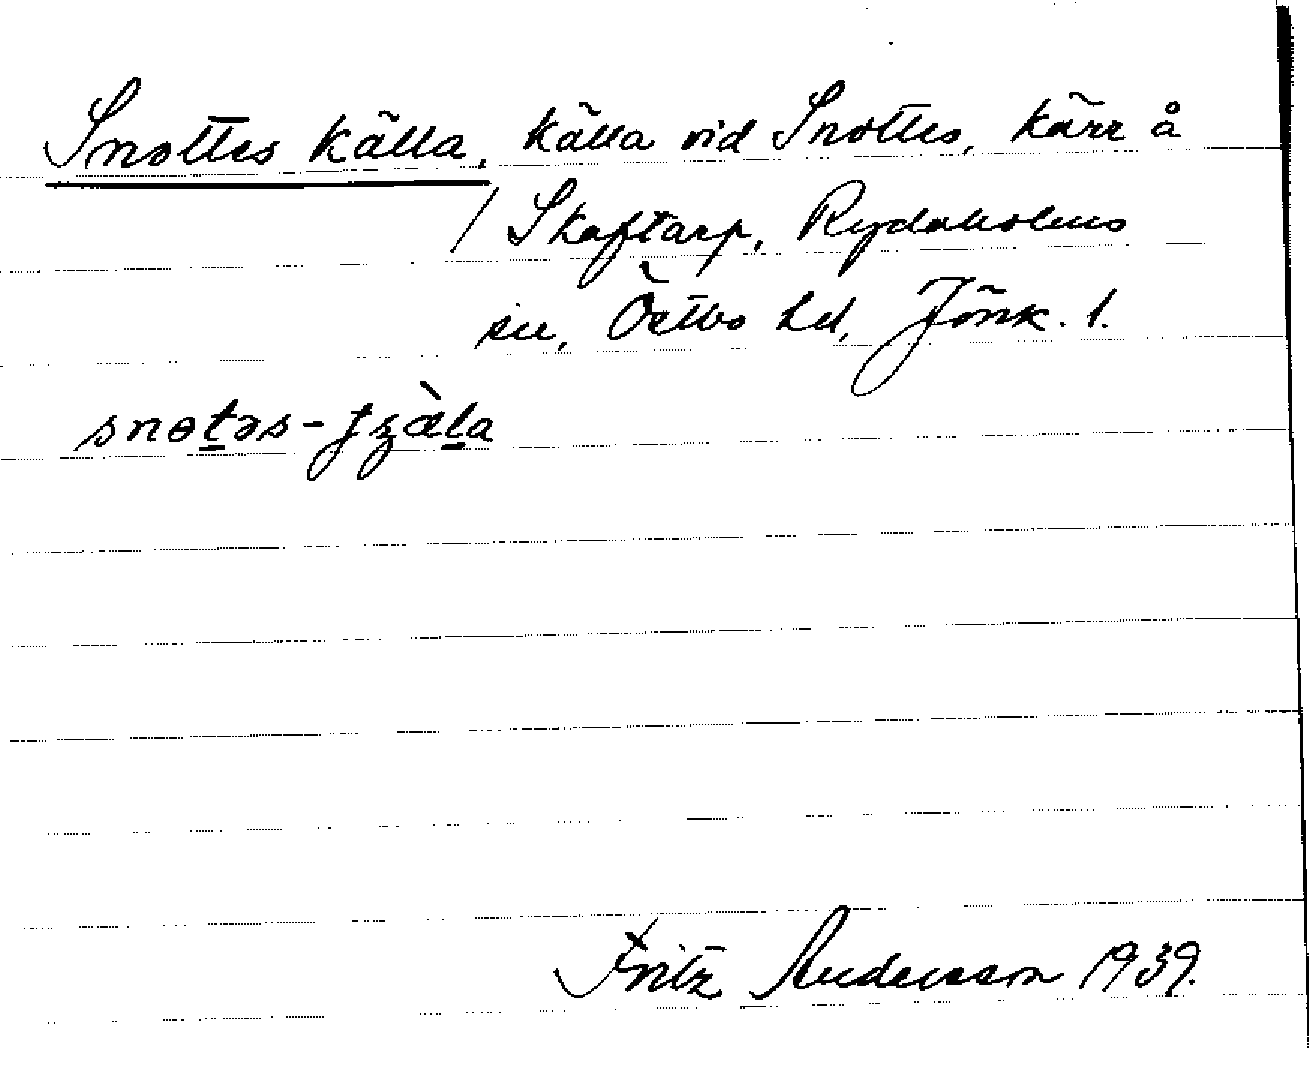 Snottes källa, källa vid Snottes, kärr å
/ Skaftarp, Rydaholms
sn, Östbo hd, Jönk. l.
snɵt̲əs-ʃʒàt̲a
Fritz Andersson 1939.